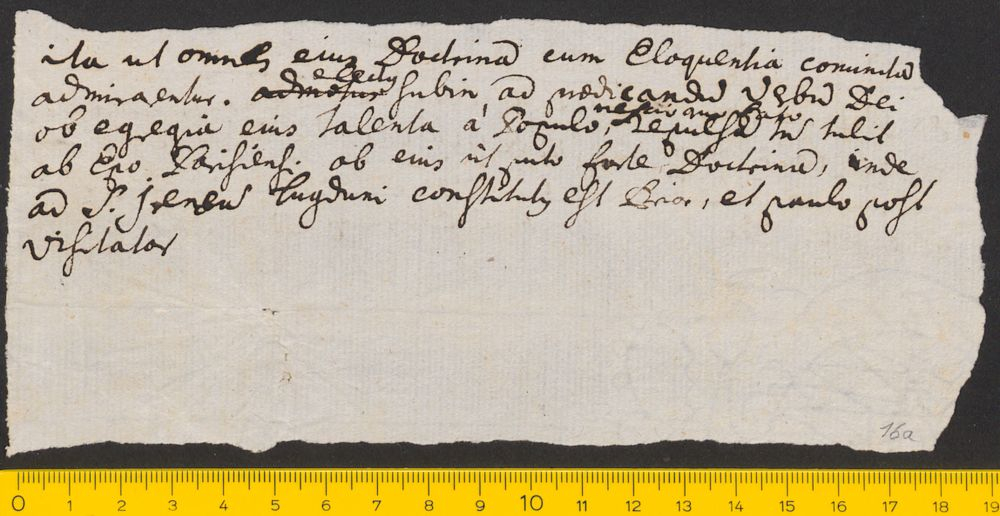 ita ut omnes eius Doctrinā cum Eloquentia coniunctā
admirarentur. admotus electus subin, ad prædicandū Verbū Dei
ob egregia eius talenta à Populo, nescio quo fato repulsā tn̄ tulit
ab Epo. Parisiens. ob eius ut puto forte Doctrinā, inde
ad S. Ireneū Lugduni constitutus est Prior, et paulo post
visitator
16a
0 1 2 3 4 5 6 7 8 9 10 11 12 13 14 15 16 17 18 19